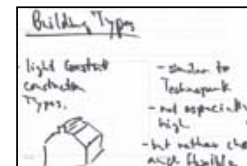 Building Types
- light
construction
Types.
- similar to
Technopark
- not especially
high.
- but rather
flexible